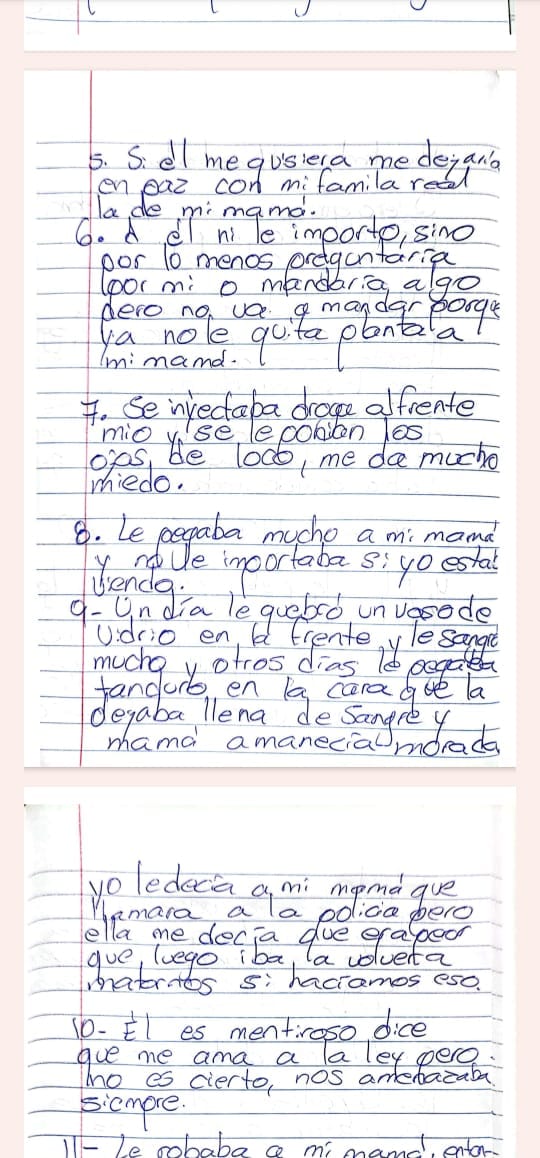 5. Si él me quisiera me dejaría
en paz con mi famila real
la de mi mamá.
6. A él ni le importo, sino
por lo menos preguntaría
por mi o mandaría algo
pero no va a mandar porque
ya no le quita planta a
mi mamá.
7. Se injectaba droga al frente
mio y se le ponían los
ojos de loco, me da mucho
miedo.
8. Le pegaba mucho a mi mamá
y no le importaba si yo estaba
viendo.
9- Un día le quebró un vaso de
vidrio en la frente y le sangró
mucho y otros días le pegaba
tan duro en la cara que la
dejaba llena de sangre y
mamá amanecía morada
yo le decía a mi mamá que
llamara a la policia pero
ella me decía que era peor
que luego iba a volver a
matarnos si hacíamos eso.
10- Él es mentiroso dice
que me ama a la ley pero
no es cierto, nos amenazaba
siempre.
11- Le robaba a mi mamá, enton-